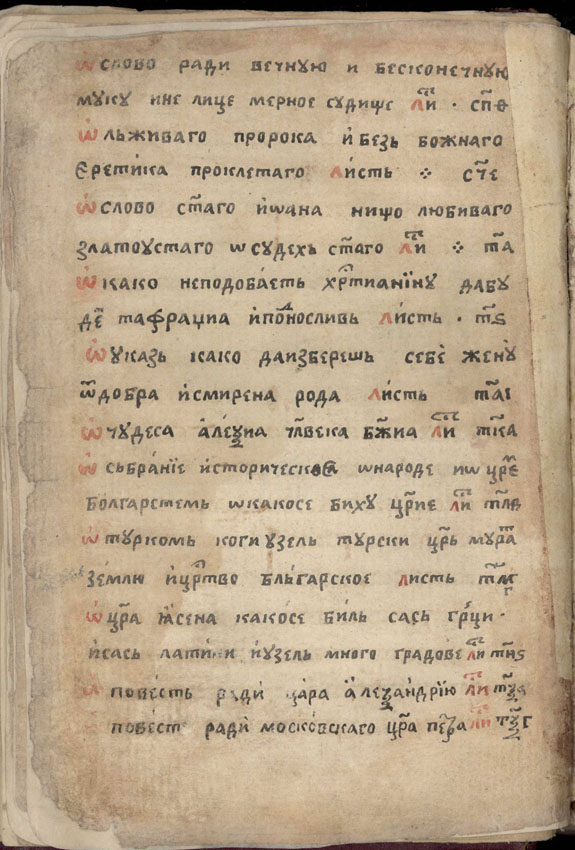 ѡ слово ради вечную и бесконечную
муку ине лице мерное судище ли҇с · сп҃ѳ
ѡ льживаго пророка и҆ безь божнаго
єретика проклетаго листь ⁘ сч҃е
ѡ слово ст҃аго иѡана нищо любиваго
златоустаго ѡ судехь ст҃аго ли҇с ⁘ т҃а
ѡ како неподобаеть хрⷭ҇тианїину дабу
деⷮ҇ тафрациа и҆ поⷩ҇осливь листь · т҃ѕ
ѡ указь како да изберешь себе жену
ѿ добра и҆ смирена рода листь т҃аі
ѡ чудеса а҆леѯиа чл҃века бж҃иа ли҇с тк҃а
ѡ събранїе и҆сторическо ѡ народе и ѡ цр҃е
болгарстемь ѡ како се биху цр҃ие ли҇с тл҃в
ѡ туркомь коги узель турски цр҃ь мураⷮ
землю и҆ цр҃тво бльгарское листь тм҃г
ѡ цр҃а ꙗ҆сена како се биль сась грⷰ҇и ·
и҆сась латини и҆ узель много градове ли҇с тн҃ѕ
ѡ повесть ради цара а҆леѯандрїю ли҇с
повест ради московскаго цр҃а петра ли҇с